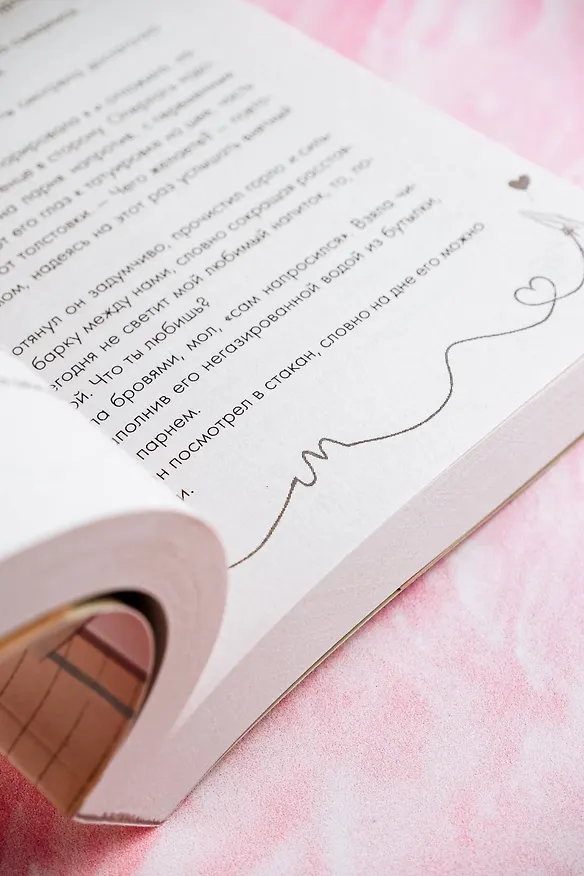 смотреть
и отложить, но
в сторону. Оперлась
парня напротив, с
от его глаз к татуировке на шее, часть
от толстовки. — Чего желаете? — повто-
лом, надеясь на этот раз услышать внятный
отянул он задумчиво, прочистил горло и силь-
барку между нами, словно сокращая расстоя-
егодня не светит мой любимый напиток, то, по-
ой. Что ты любишь?
ла бровями, мол, «сам напросился». Взяла чи-
полнив его негазированной водой из бутылки,
парнем.
н посмотрел в стакан, словно на дне его можно
и.